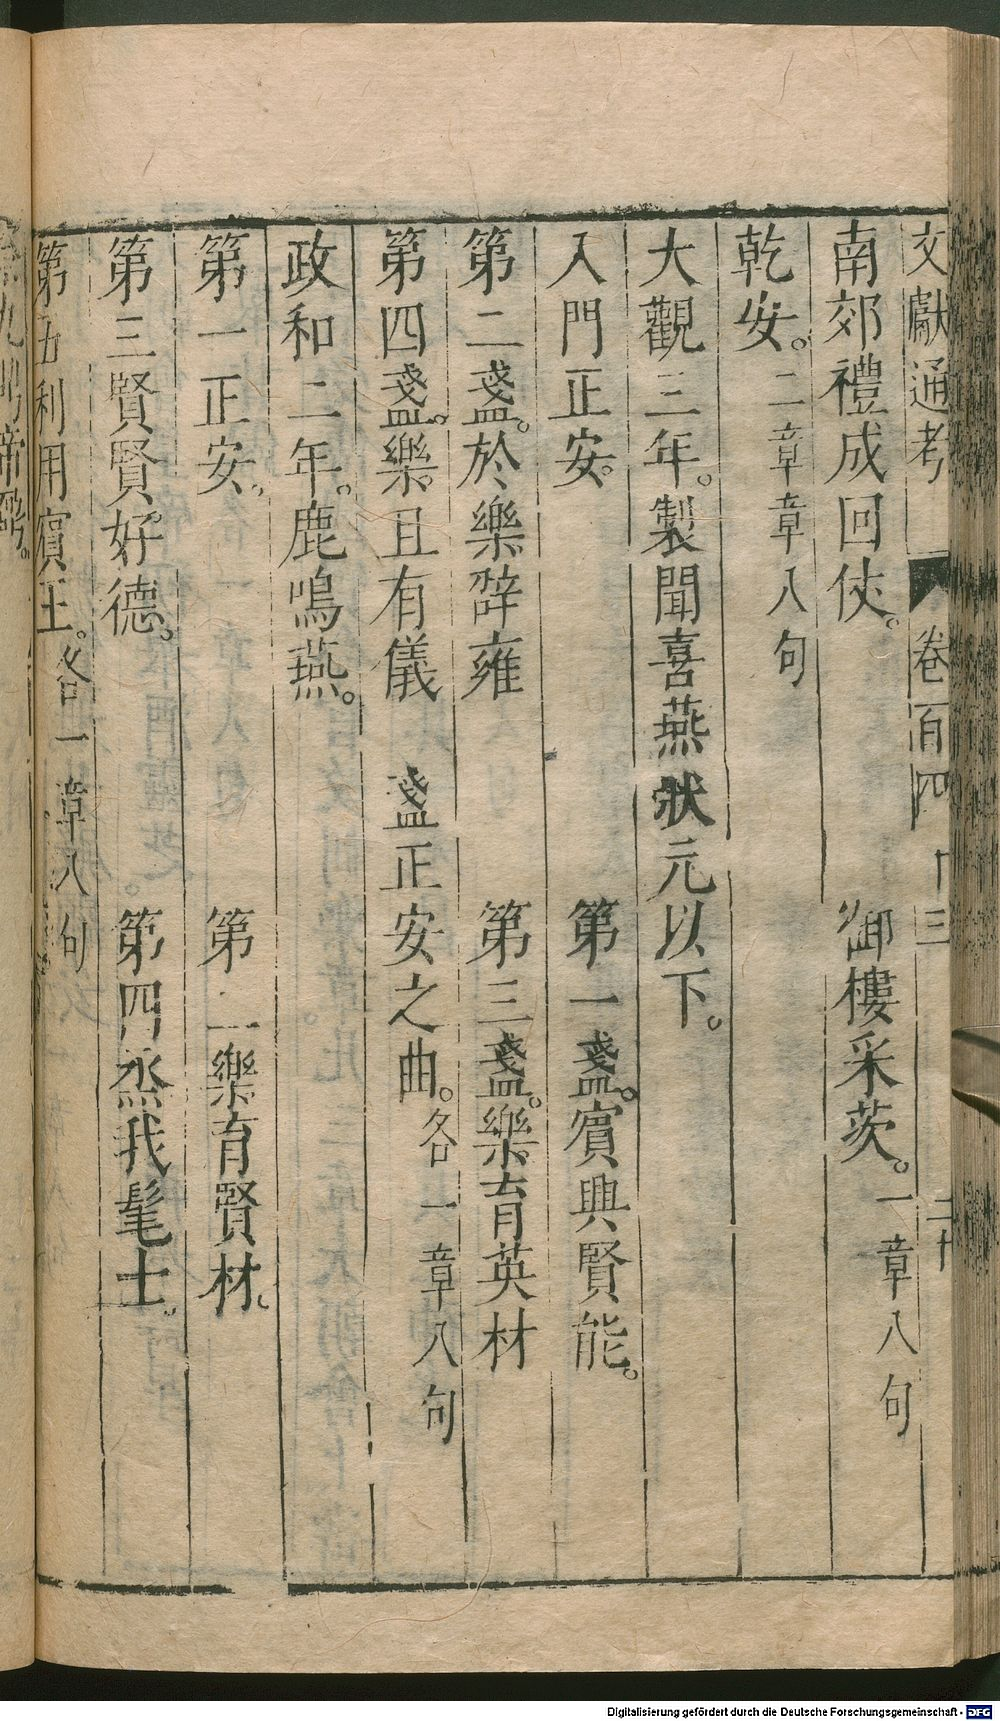 文獻通考　卷百四十三　二十
南郊禮成回伏。　御樓采茨。一章八句
乾安。二章章八句
大觀三年。製聞喜燕狀元以下。
入門正安。　第一盞。賓興賢能。
第二盞。於樂辟雍　第三盞。樂育英材
第四盞。樂且有儀　盞正安之曲。各一章八句
政和二年。鹿鳴燕。
第一正安。　第二樂育賢材。
第三賢賢好德。　第四烝我髦士。
第五利用賓王。各一章八句
Digitalisierung gefördert durch die Deutsche Forschungsgemeinschaft - DFG